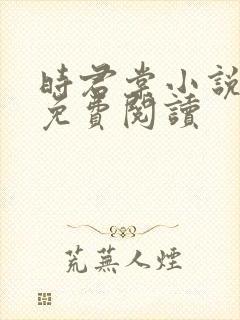 時君棠小說
免費閱讀
荒蕪人煙